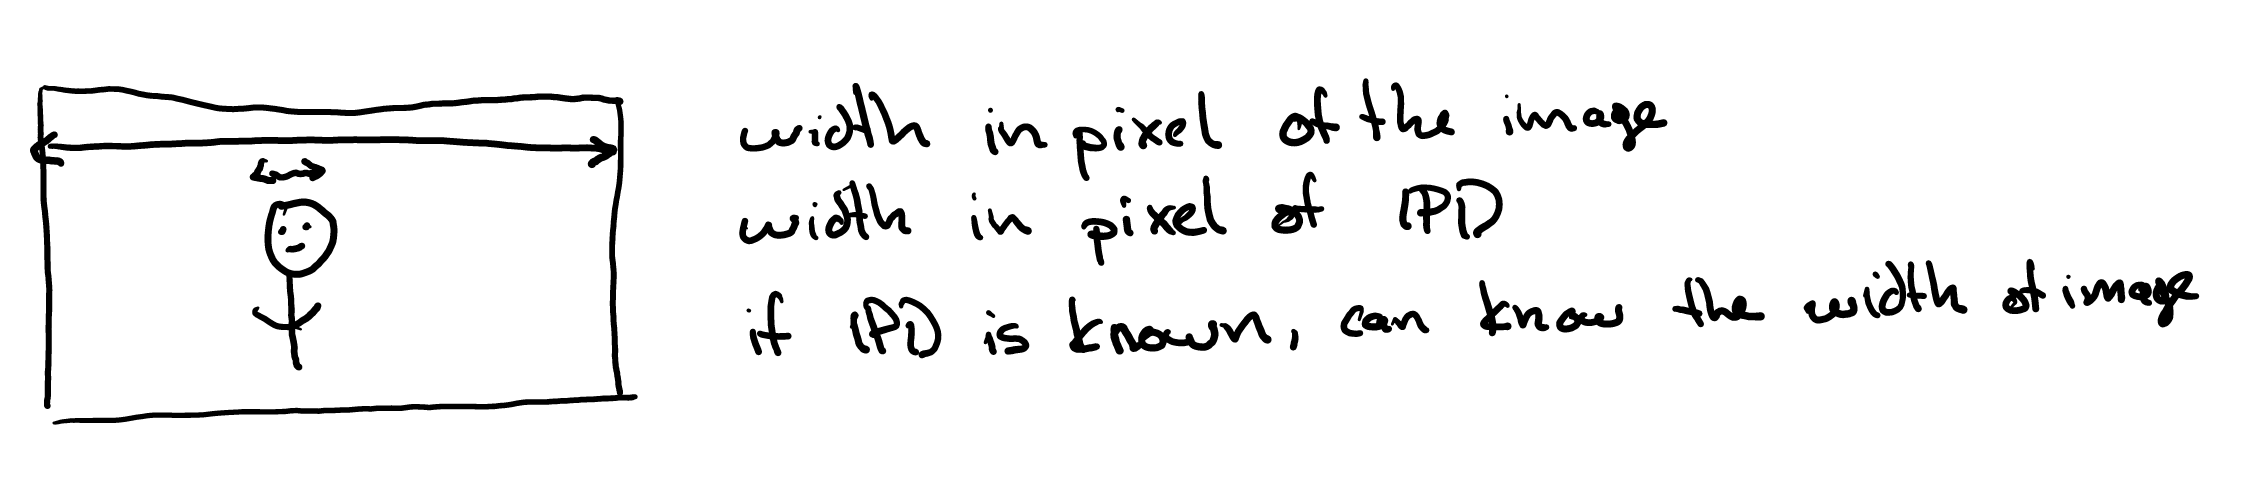 width in pixel of the image
width in pixel of IPD
if IPD is known, can know the width of image